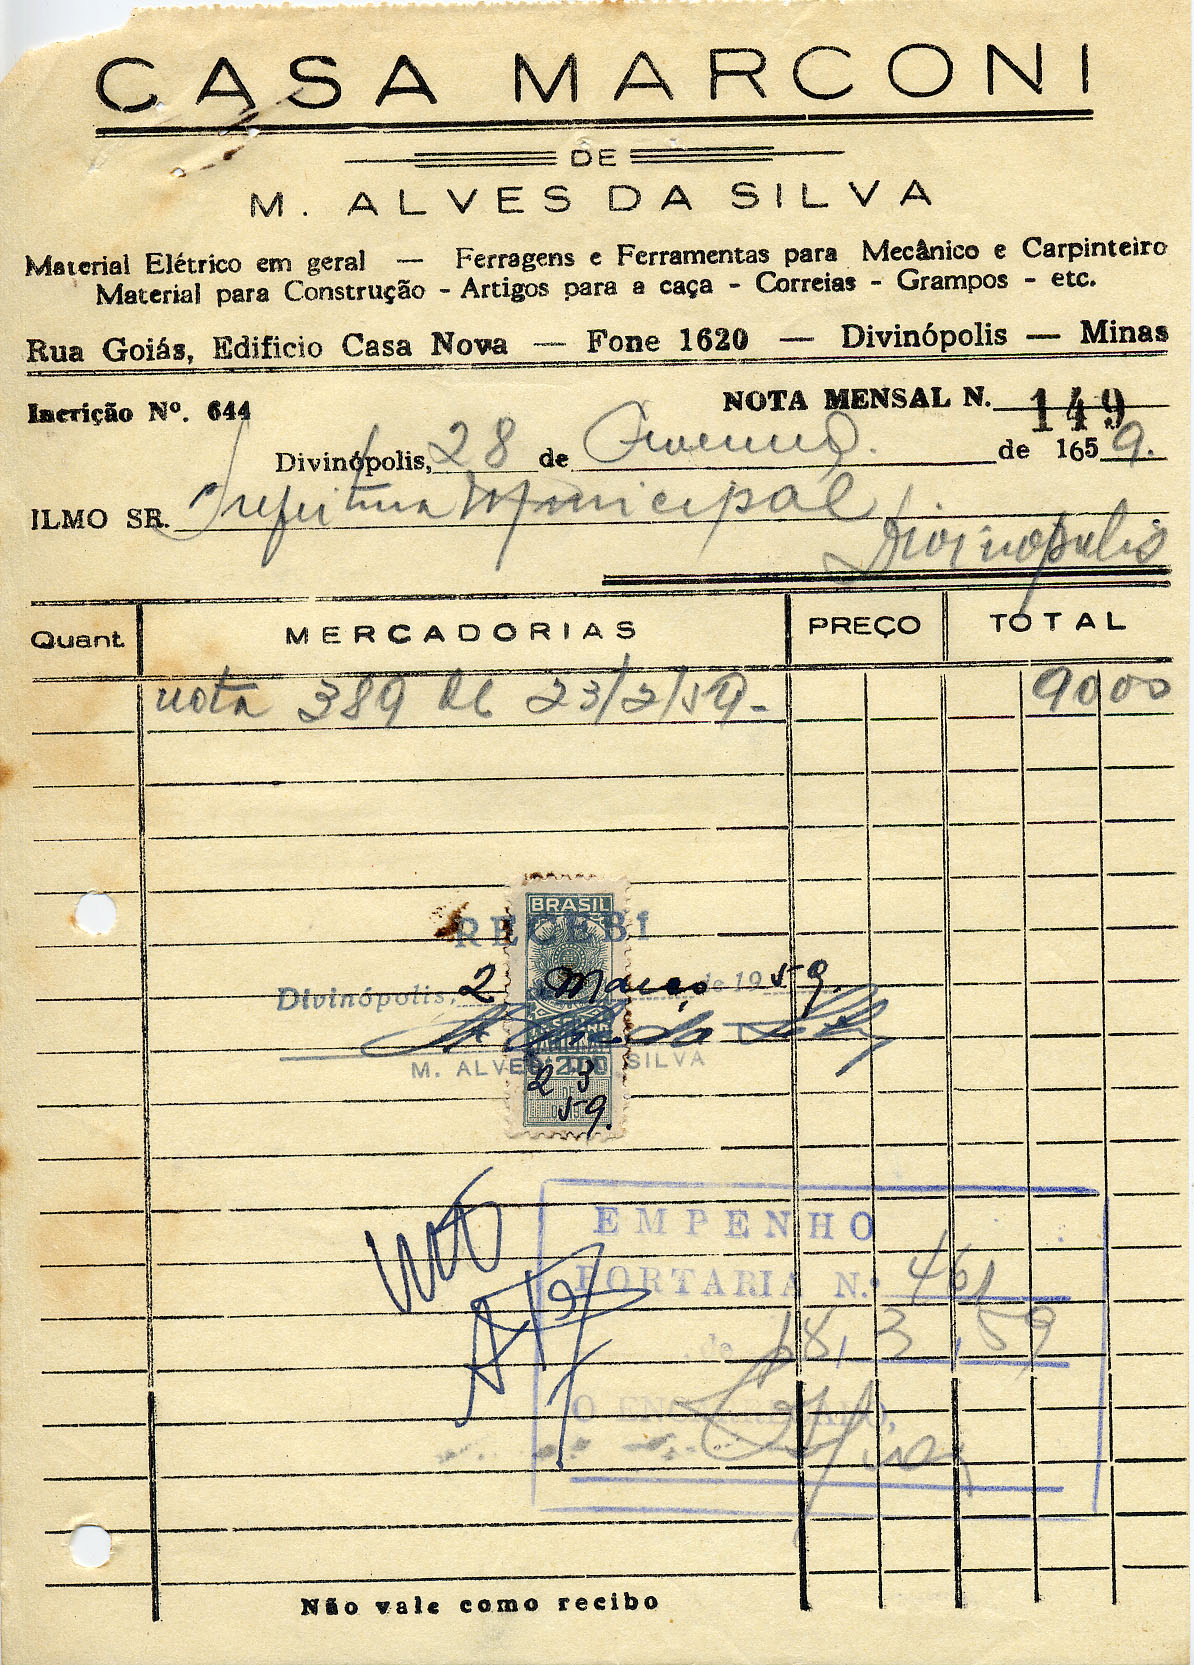 CASA MARCONI
DE
M. ALVES DA SILVA
Material Elétrico em geral — Ferragens e Ferramentas para Mecânico e Carpinteiro
Material para Construção - Artigos para a caça - Correias - Grampos - etc.
Rua Goiás, Edificio Casa Nova — Fone 1620 — Divinópolis — Minas
Incrição Nº. 644
NOTA MENSAL N. 149
Divinópolis, 28 de de 1659.
ILMO SR. Prefeitura Municipal
Divinopolis
Quant. MERCADORIAS PREÇO TOTAL
nota 389 de 23/2/59.- 90 00
BRASIL
RECEBI
Divinópolis, 2 Março de 1959.
M. ALVES DA SILVA
2 3
59.
EMPENHO
PORTARIA N.º 461
de 18, 3, 59
O ENCARREGADO,
Não vale como recibo